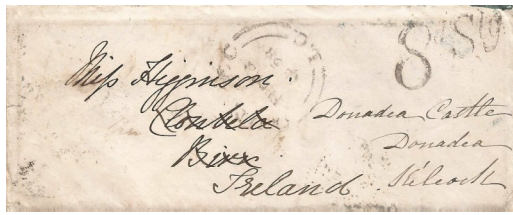 Miss Higginson
Birr
Ireland
Donadea Castle
Donadea
Kilcock
8